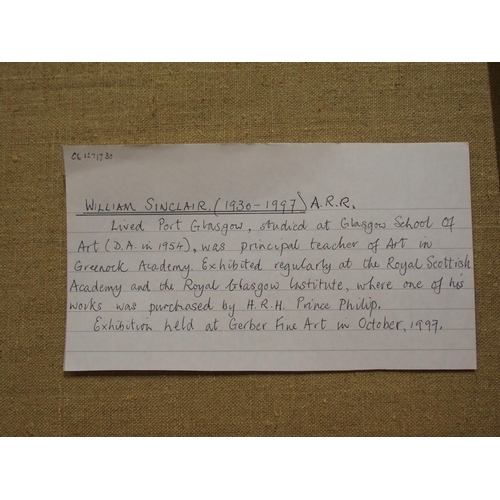 WILLIAM SINCLAIR. (1930-1997) A.R.R.
Lived Port Glasgow, studied at Glasgow School Of
Art (D.A. in 1954), was principal teacher of Art in
Greenock Academy. Exhibited regularly at the Royal Scottish
Academy and the Royal Glasgow Institute, where one of his
works was purchased by H.R.H. Prince Philip.
Exhibition held at Gerber Fine Art in October, 1997.